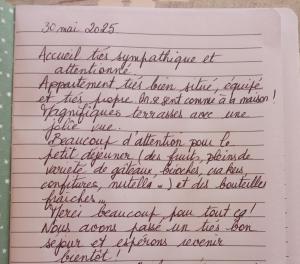 30 mai 2025
Accueil très sympathique et
attentionné.
Appartement très bien situé, équipé
et très propre. On se sent comme à la maison !
Magnifiques terrasses avec une
jolie vue.
Beaucoup d'attention pour le
petit déjeuner (des fruits, pleins de
variété de gâteaux, brioches,
confitures, nutella...) et des bouteilles
fraîches...
Merci beaucoup pour tout ça !
Nous avons passé un très bon
séjour et espérons revenir
bientôt !